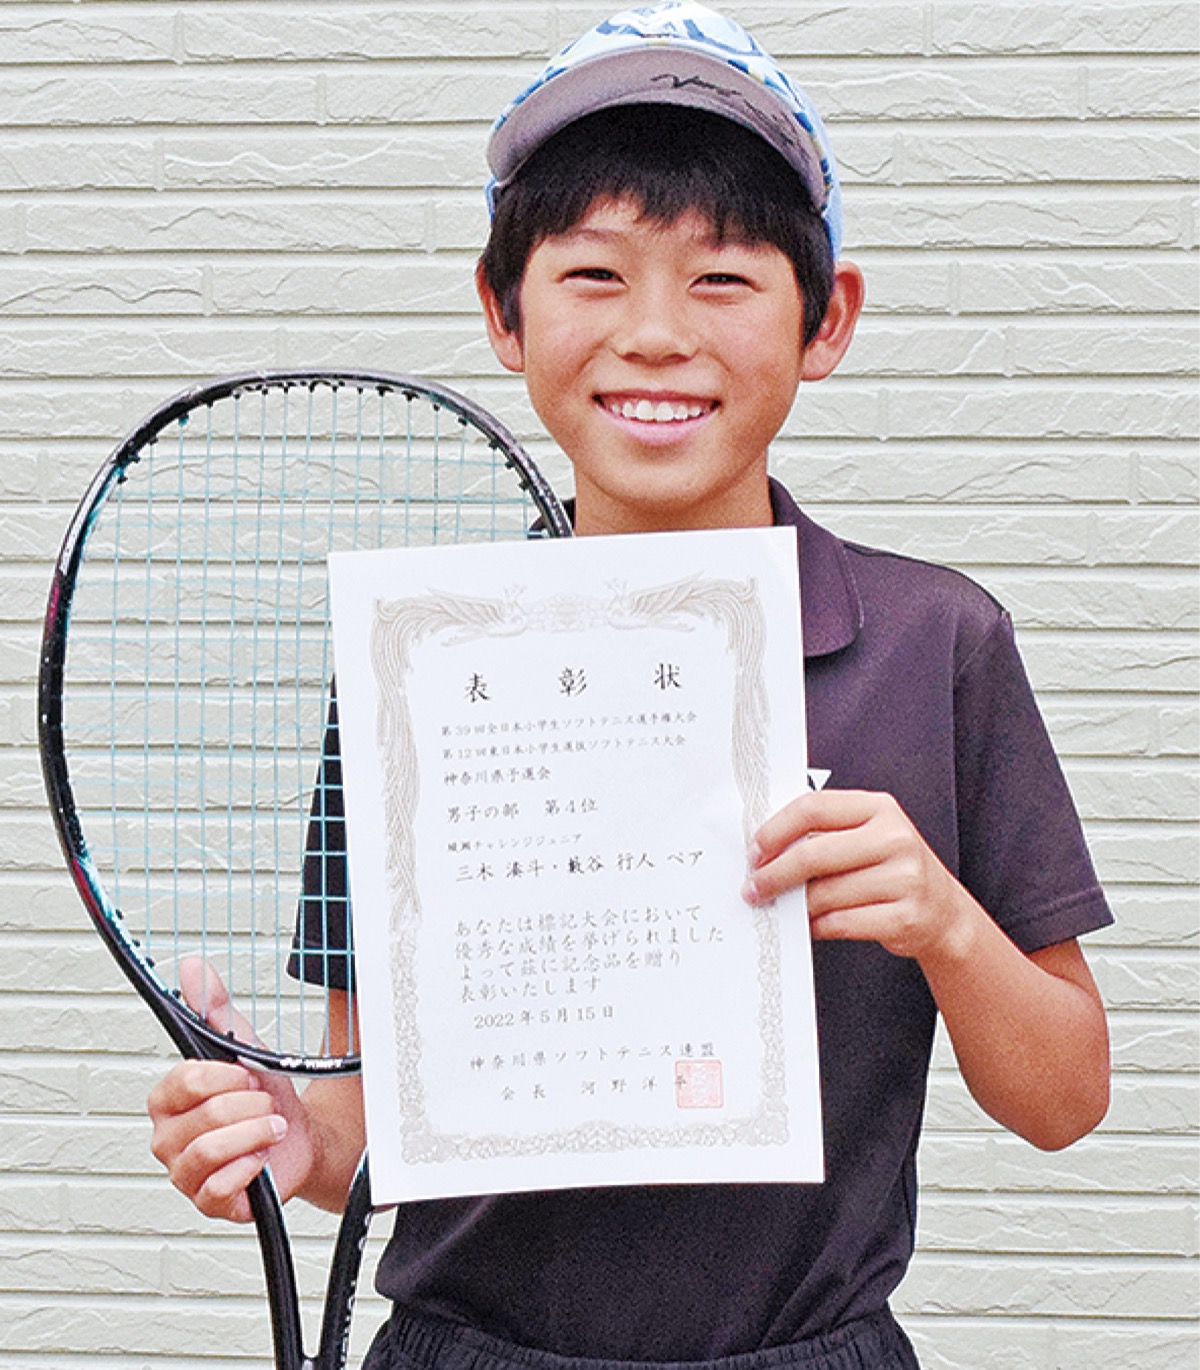 表彰状
第39回全日本小学生ソフトテニス選手権大会
第12回東日本小学生選抜ソフトテニス大会
神奈川県予選会
男子の部 第4位
綾瀬チャレンジジュニア
三木 湊斗・藪谷 行人 ペア
あなたは標記大会において
優秀な成績を挙げられました
よって茲に記念品を贈り
表彰いたします
2022年5月15日
神奈川県ソフトテニス連盟
会長 河野洋平